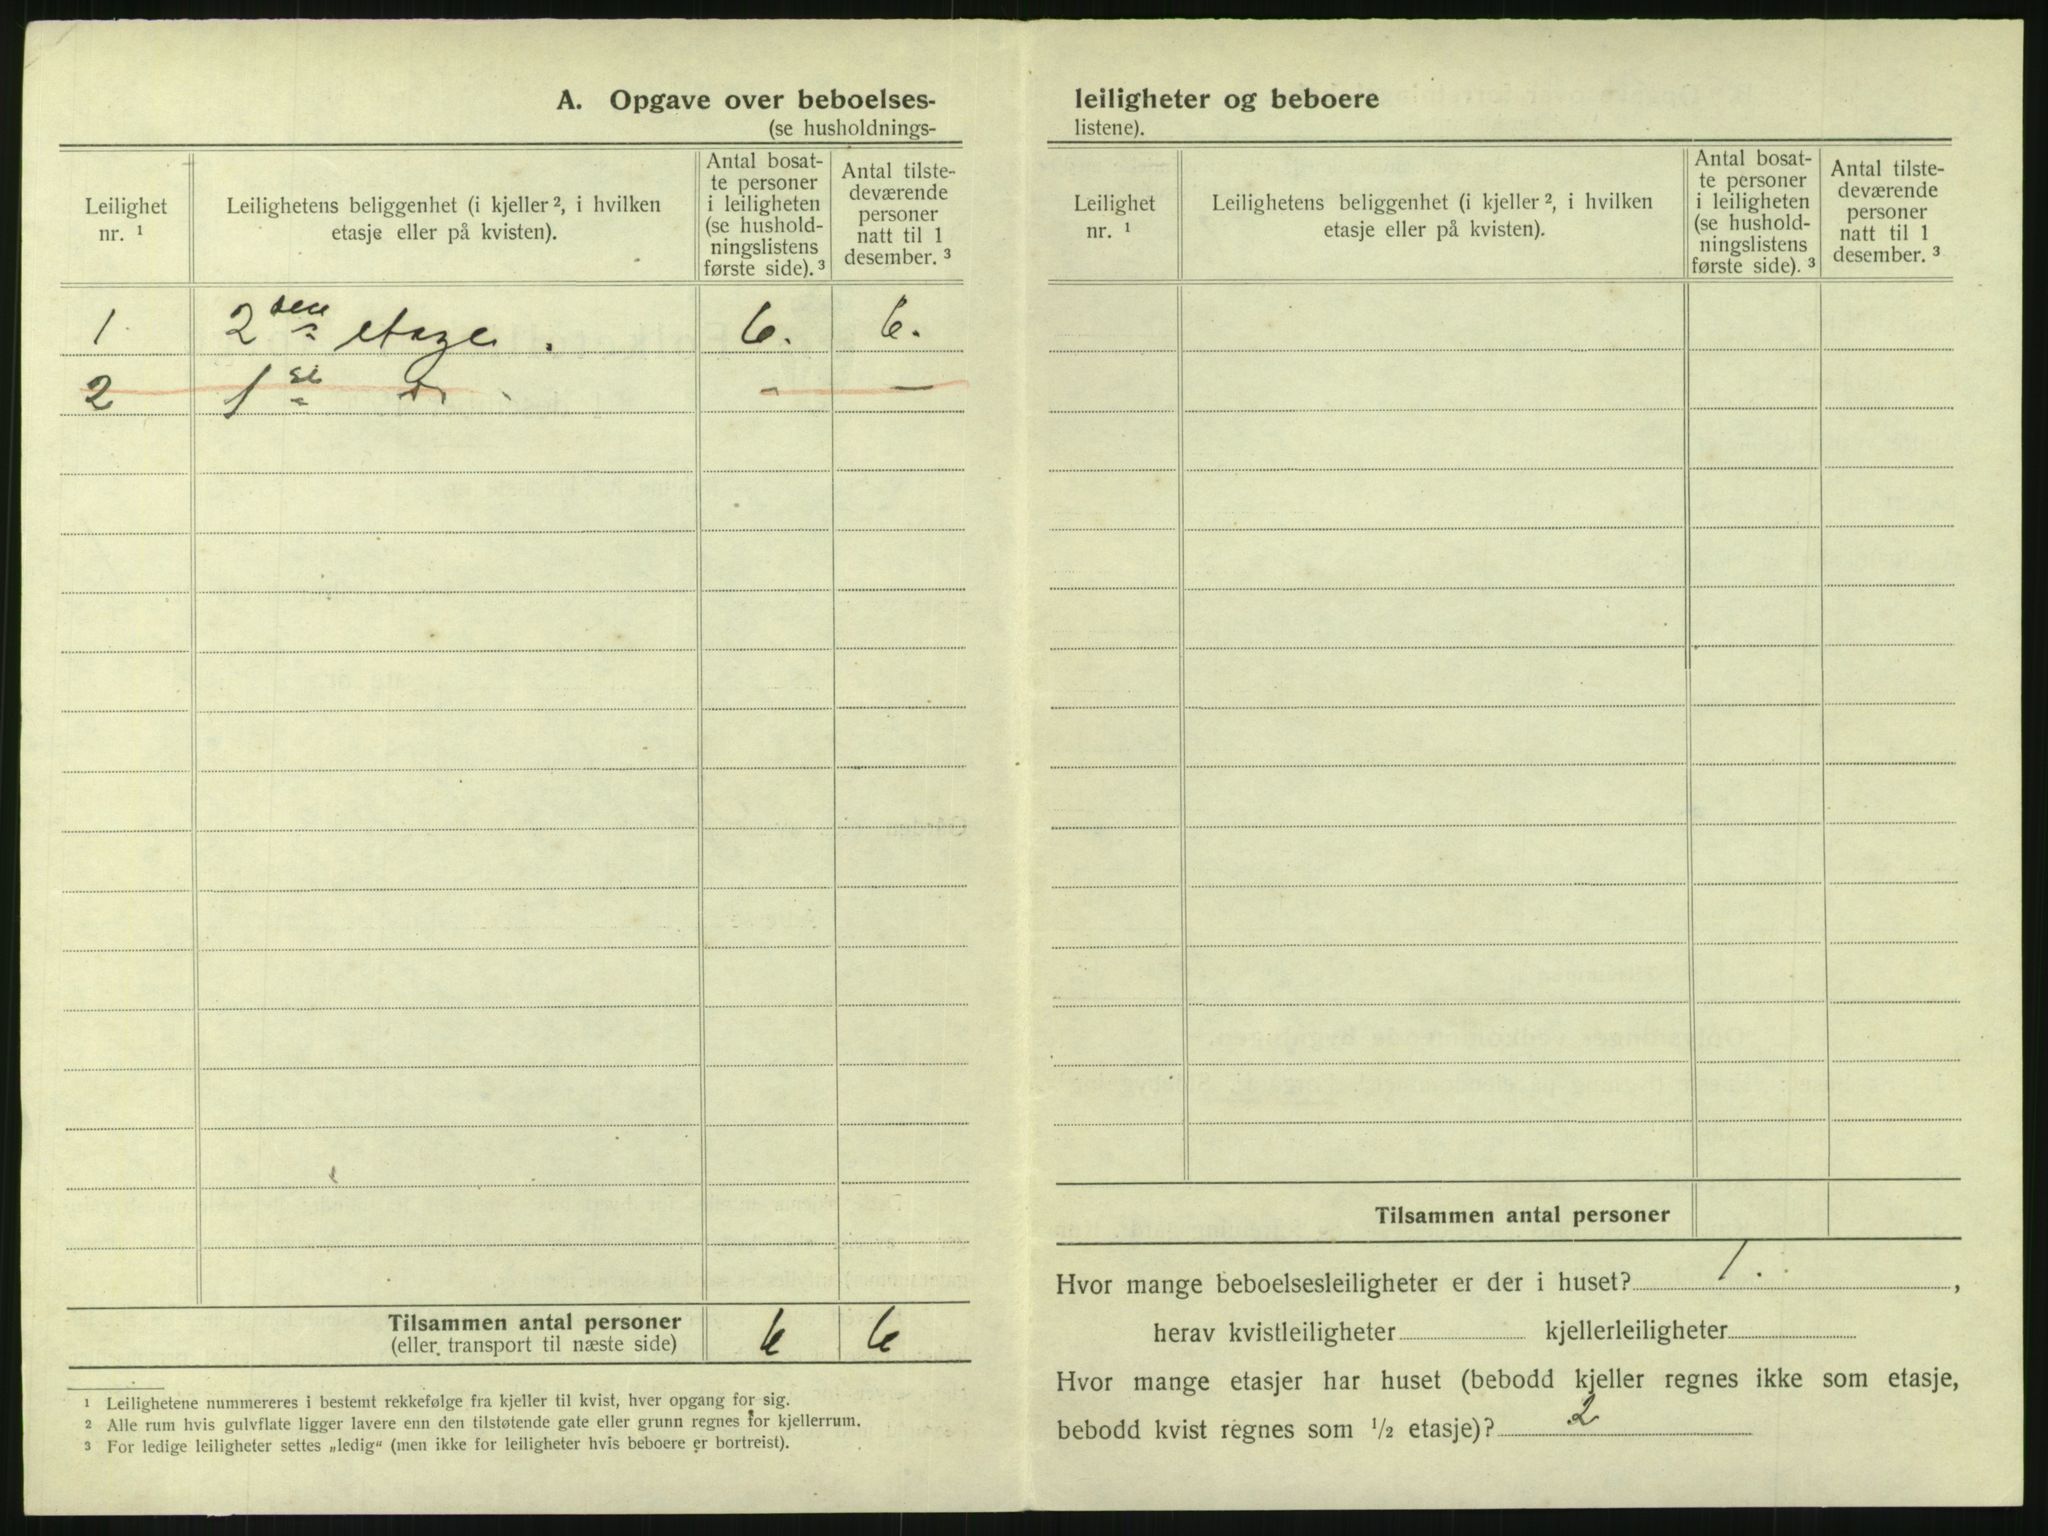 A. Opgave over beboelses-
(se husholdnings-
Leilighet
nr. 1
Leilighetens beliggenhet (i kjeller 2, i hvilken
etasje eller på kvisten).
Antal bosat-
te personer
i leiligheten
(se hushold-
ningslistens
første side). 3
Antal tilste-
deværende
personer
natt til 1
desember. 3
1 2den etage. 6. 6.
2 1ste do. - -
Tilsammen antal personer 6 6
(eller transport til næste side)
1 Leilighetene nummereres i bestemt rekkefølge fra kjeller til kvist, hver opgang for sig.
2 Alle rum hvis gulvflate ligger lavere enn den tilstøtende gate eller grunn regnes for kjellerrum.
3 For ledige leiligheter settes „ledig“ (men ikke for leiligheter hvis beboere er bortreist).
leiligheter og beboere
listene).
Leilighet
nr. 1
Leilighetens beliggenhet (i kjeller 2, i hvilken
etasje eller på kvisten).
Antal bosat-
te personer
i leiligheten
(se hushold-
ningslistens
første side). 3
Antal tilste-
deværende
personer
natt til 1
desember. 3
Tilsammen antal personer
Hvor mange beboelsesleiligheter er der i huset? 1. ,
herav kvistleiligheter kjellerleiligheter
Hvor mange etasjer har huset (bebodd kjeller regnes ikke som etasje,
bebodd kvist regnes som 1/2 etasje)? 2